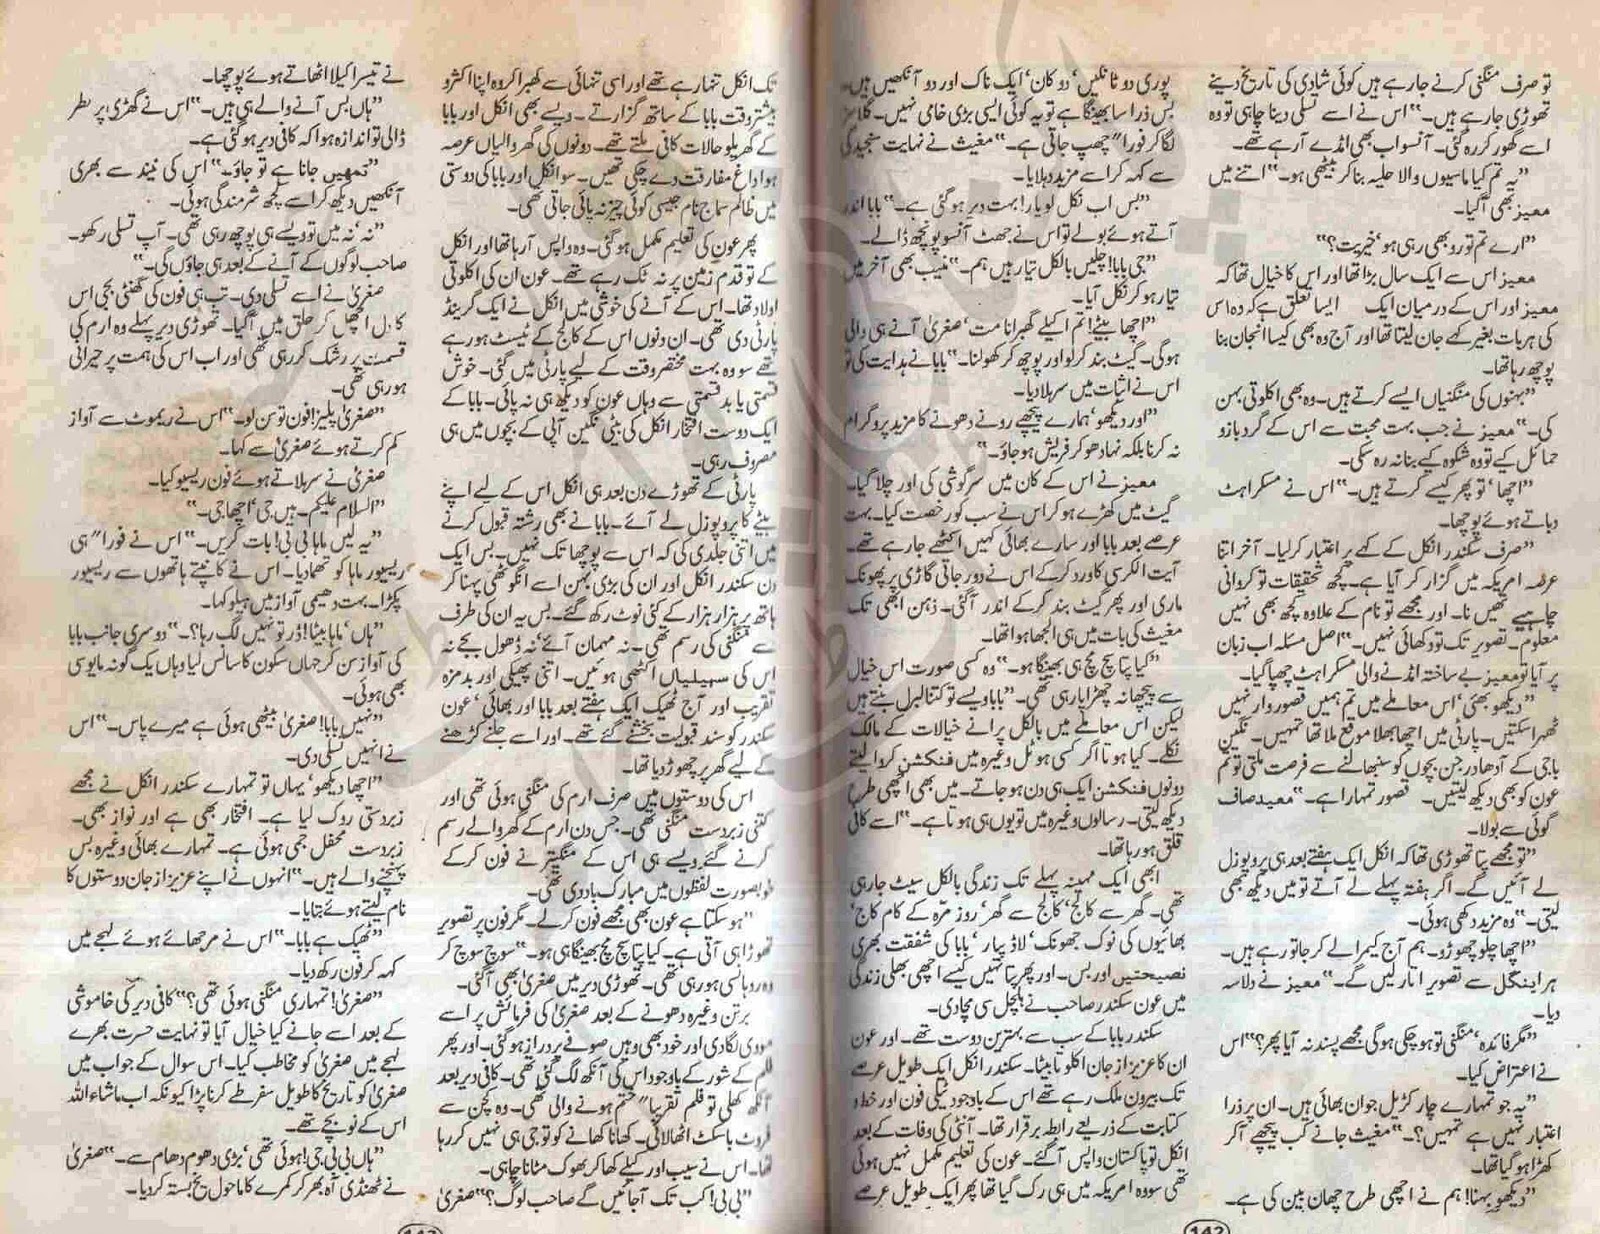 تو صرف منگنی کرنے جارہے ہیں کوئی شادی کی تاریخ دینے
تھوڑی جارہے ہیں۔“ اس نے اسے تسلی دینا چاہی تو وہ
اسے گھور کر رہ گئی۔ آنسو اب بھی امڈے آرہے تھے۔
”یہ تم کیا ماسیوں والا حلیہ بنا کر بیٹھی ہو۔“ اتنے میں
معیز بھی آگیا۔
”ارے تم تو رو بھی رہی ہو‘ خیریت؟“
معیز اس سے ایک سال بڑا تھا اور اس کا خیال تھا کہ
معیز اور اس کے درمیان ایک ایسا تعلق ہے کہ وہ اس
کی ہر بات بغیر کہے جان لیتا تھا اور آج وہ بھی کیسا انجان بنا
پوچھ رہا تھا۔
”بہنوں کی منگنیاں ایسے کرتے ہیں۔ وہ بھی اکلوتی بہن
کی۔“ معیز نے جب بہت محبت سے اس کے گرد بازو
حمائل کیے تو وہ شکوہ کیے بنا نہ رہ سکی۔
”اچھا‘ تو پھر کیسے کرتے ہیں۔“ اس نے مسکراہٹ
دباتے ہوئے پوچھا۔
”صرف سکندر انکل کے کہے پر اعتبار کرلیا۔ آخر اتنا
عرصہ امریکہ میں گزار کر آیا ہے۔ کچھ تحقیقات تو کروانی
چاہیے تھیں نا۔ اور مجھے تو نام کے علاوہ کچھ بھی نہیں
معلوم۔ تصویر تک تو دکھائی نہیں۔“ اصل مسئلہ اب زبان
پر آیا تو معیز بے ساختہ امڈنے والی مسکراہٹ چھپا گیا۔
”دیکھو بھئی‘ اس معاملے میں تم ہمیں قصوروار نہیں
ٹھہرا سکتیں۔ پارٹی میں اچھا بھلا موقع ملا تھا تمہیں۔ نگین
باجی کے آدھا درجن بچوں کو سنبھالنے سے فرصت ملتی تو تم
عون کو بھی دیکھ لیتیں۔ قصور تمہارا ہے۔“ معید صاف
گوئی سے بولا۔
”تو مجھے پتا تھوڑی تھا کہ انکل ایک ہفتے بعد ہی پروپوزل
لے آئیں گے۔ اگر ہفتہ پہلے لے آتے تو میں دیکھ بھی
لیتی۔“ وہ مزید دکھی ہوئی۔
”اچھا چلو چھوڑو۔ ہم آج کیمرا لے کر جاتو رہے ہیں۔
ہر اینگل سے تصویر اتار لیں گے۔“ معیز نے دلاسہ
دیا۔
”مگر فائدہ‘ منگنی تو ہو چکی ہوگی مجھے پسند نہ آیا پھر؟“ اس
نے اعتراض کیا۔
”یہ جو تمہارے چار کڑیل جوان بھائی ہیں۔ ان پر ذرا
اعتبار نہیں ہے تمہیں؟۔“ مغیث جانے کب پیچھے آکر
کھڑا ہو گیا تھا۔
”دیکھو بہنا! ہم نے اچھی طرح چھان بین کی ہے۔
پوری دو ٹانگیں‘ دو کان‘ ایک ناک اور دو آنکھیں ہیں۔
بس ذرا سا بھینگا ہے تو یہ کوئی ایسی بڑی خامی نہیں۔ گلاسز
لگا کر فورا“ چھپ جاتی ہے۔“ مغیث نے نہایت سنجیدگی
سے کہہ کر اسے مزید دہلایا۔
”بس اب نکل لو یار! بہت دیر ہو گئی ہے۔“ بابا اندر
آتے ہوئے بولے تو اس نے جھٹ آنسو پونچھ ڈالے۔
”جی بابا! چلیں بالکل تیار ہیں ہم۔“ منیب بھی آخر میں
تیار ہو کر نکل آیا۔
”اچھا بیٹے! تم اکیلے گھبرانا مت‘ صغریٰ آنے ہی والی
ہوگی۔ گیٹ بند کرلو اور پوچھ کر کھولنا۔“ بابا نے ہدایت کی تو
اس نے اثبات میں سر ہلا دیا۔
”اور دیکھو‘ ہمارے پیچھے رونے دھونے کا مزید پروگرام
نہ کرنا بلکہ نہا دھو کر فریش ہو جاؤ۔“
معیز نے اس کے کان میں سرگوشی کی اور چلا گیا۔
گیٹ میں کھڑے ہو کر اس نے سب کو رخصت کیا۔ بہت
عرصے بعد بابا اور سارے بھائی کہیں اکٹھے جارہے تھے۔
آیت الکرسی کا ورد کرکے اس نے دور جاتی گاڑی پر پھونک
ماری اور پھر گیٹ بند کرکے اندر آگئی۔ ذہن ابھی تک
مغیث کی بات میں ہی الجھا ہوا تھا۔
”کیا پتا سچ مچ ہی بھینگا ہو۔“ وہ کسی صورت اس خیال
سے پیچھا نہ چھڑا پا رہی تھی۔ ”بابا ویسے تو کتنا لبرل بنتے ہیں
لیکن اس معاملے میں بالکل پرانے خیالات کے مالک
نکلے۔ کیا ہوتا اگر کسی ہوٹل وغیرہ میں فنکشن کروا لیتے
دونوں فنکشن ایک ہی دن ہو جاتے۔ میں بھی اچھی طرح
دیکھ لیتی۔ رسالوں وغیرہ میں تو یوں ہی ہوتا ہے۔“ اسے کافی
قلق ہو رہا تھا۔
ابھی ایک مہینہ پہلے تک زندگی بالکل سیٹ جارہی
تھی۔ گھر سے کالج‘ کالج سے گھر‘ روز مرّہ کے کام کاج‘
بھائیوں کی نوک جھونک‘ لاڈ پیار‘ بابا کی شفقت بھری
نصیحتیں اور بس۔ اور پھر پتا نہیں کیسے اچھی بھلی زندگی
میں عون سکندر صاحب نے ہلچل سی مچادی۔
سکندر بابا کے سب سے بہترین دوست تھے۔ اور عون
ان کا عزیز از جان اکلوتا بیٹا۔ سکندر انکل ایک طویل عرصے
تک بیرون ملک رہے تھے اس کے باوجود ٹیلی فون اور خط و
کتابت کے ذریعے رابطہ برقرار تھا۔ آنٹی کی وفات کے بعد
انکل تو پاکستان واپس آگئے۔ عون کی تعلیم مکمل نہیں ہوئی
تھی سو وہ امریکہ میں ہی رک گیا تھا پھر ایک طویل عرصے
142
تک انکل تنہا رہے تھے اور اسی تنہائی سے گھبرا کر وہ اپنا اکثرو
بیشتر وقت بابا کے ساتھ گزارتے۔ ویسے بھی انکل اور بابا
کے گھریلو حالات کافی ملتے تھے۔ دونوں کی گھر والیاں عرصہ
ہوا داغ مفارقت دے چکی تھیں۔ سو انکل اور بابا کی دوستی
میں ظالم سماج نام جیسی کوئی چیز نہ پائی جاتی تھی۔
پھر عون کی تعلیم مکمل ہو گئی۔ وہ واپس آرہا تھا اور انکل
کے تو قدم زمین پر نہ ٹک رہے تھے۔ عون ان کی اکلوتی
اولاد تھا۔ اس کے آنے کی خوشی میں انکل نے ایک گرینڈ
پارٹی دی تھی۔ ان دنوں اس کے کالج کے ٹیسٹ ہو رہے
تھے سو وہ بہت مختصر وقت کے لیے پارٹی میں گئی۔ خوش
قسمتی یا بدقسمتی سے وہاں عون کو دیکھ ہی نہ پائی۔ بابا کے
ایک دوست افتخار انکل کی بیٹی نگین آپی کے بچوں میں ہی
مصروف رہی۔
پارٹی کے تھوڑے دن بعد ہی انکل اس کے لیے اپنے
بیٹے کا پروپوزل لے آئے۔ بابا نے بھی رشتہ قبول کرنے
میں اتنی جلدی کی کہ اس سے پوچھا تک نہیں۔ بس ایک
دن سکندر انکل اور ان کی بڑی بہن اسے انگوٹھی پہنا کر
ہاتھ پر ہزار ہزار کے کئی نوٹ رکھ گئے۔ بس یہ ان کی طرف
سے منگنی کی رسم تھی۔ نہ مہمان آئے‘ نہ ڈھول بجے نہ
اس کی سہیلیاں اکٹھی ہوئیں۔ اتنی پھیکی اور بدمزہ
تقریب اور آج ٹھیک ایک ہفتے بعد بابا اور بھائی‘ عون
سکندر کو سند قبولیت بخشنے گئے تھے۔ اور اسے جلنے کڑھنے
کے لیے گھر پر چھوڑ دیا تھا۔
اس کی دوستوں میں صرف ارم کی منگنی ہوئی تھی اور
کتنی زبردست منگنی تھی۔ جس دن ارم کے گھر والے رسم
کرنے گئے ویسے ہی اس کے منگیتر نے فون کرکے
خوبصورت لفظوں میں مبارک باد دی تھی۔
”ہو سکتا ہے عون بھی مجھے فون کرلے۔ مگر فون پر تصویر
تھوڑا ہی آتی ہے۔ کیا پتا سچ مچ بھینگا ہی ہو۔“ سوچ سوچ کر
وہ روہانسی ہو رہی تھی۔ تھوڑی دیر میں صغریٰ بھی آگئی۔
برتن وغیرہ دھونے کے بعد صغریٰ کی فرمائش پر اسے
مووی لگا دی اور خود بھی وہیں صوفے پر دراز ہو گئی۔ اور پھر
فلم کے شور کے باوجود اس کی آنکھ لگ گئی تھی۔ کافی دیر بعد
آنکھ کھلی تو فلم تقریبا“ ختم ہونے والی تھی۔ وہ کچن سے
فروٹ باسکٹ اٹھا لائی۔ کھانا کھانے کو تو جی ہی نہیں کر رہا
تھا۔ اس نے سیب اور کیلے کھا کر بھوک مٹانا چاہی۔
”بی بی! کب تک آجائیں گے صاحب لوگ؟“ صغریٰ
نے تیسرا کیلا اٹھاتے ہوئے پوچھا۔
”ہاں بس آنے والے ہی ہیں۔“ اس نے گھڑی پر نظر
ڈالی تو اندازہ ہوا کہ کافی دیر ہو گئی ہے۔
”تمہیں جانا ہے تو جاؤ۔“ اس کی نیند سے بھری
آنکھیں دیکھ کر اسے کچھ شرمندگی ہوئی۔
”نہ‘ نہ میں تو ویسے ہی پوچھ رہی تھی۔ آپ تسلی رکھو۔
صاحب لوگوں کے آنے کے بعد ہی جاؤں گی۔“
صغریٰ نے اسے تسلی دی۔ تب ہی فون کی گھنٹی بجی اس
کا دل اچھل کر حلق میں آگیا۔ تھوڑی دیر پہلے وہ ارم کی
قسمت پر رشک کر رہی تھی اور اب اس کی ہمت پر حیرانی
ہو رہی تھی۔
”صغریٰ پلیز! فون تو سن لو۔“ اس نے ریموٹ سے آواز
کم کرتے ہوئے صغریٰ سے کہا۔
صغریٰ نے سر ہلاتے ہوئے فون ریسیو کیا۔
”السلام علیکم۔ ہیں جی‘ اچھا جی۔“
”یہ لیں ماہا بی بی! بات کریں۔“ اس نے فورا“ ہی
ریسیور ماہا کو تھما دیا۔ اس نے کانپتے ہاتھوں سے ریسیور
پکڑا۔ بہت دھیمی آواز میں ہیلو کہا۔
”ہاں‘ ماہا بیٹا! ڈر تو نہیں لگ رہا؟۔“ دوسری جانب بابا
کی آواز سن کر جہاں سکون کا سانس لیا وہاں یک گونہ مایوسی
بھی ہوئی۔
”نہیں بابا! صغریٰ بیٹھی ہوئی ہے میرے پاس۔“ اس
نے انہیں تسلی دی۔
”اچھا دیکھو‘ یہاں تو تمہارے سکندر انکل نے مجھے
زبردستی روک لیا ہے۔ افتخار بھی ہے اور نواز بھی۔
زبردست محفل جمی ہوئی ہے۔ تمہارے بھائی وغیرہ بس
پہنچنے والے ہیں۔“ انہوں نے اپنے عزیز از جان دوستوں کا
نام لیتے ہوئے بتایا۔
”ٹھیک ہے بابا۔“ اس نے مرجھائے ہوئے لہجے میں
کہہ کر فون رکھ دیا۔
”صغریٰ! تمہاری منگنی ہوئی تھی؟“ کافی دیر کی خاموشی
کے بعد اسے جانے کیا خیال آیا تو نہایت حسرت بھرے
لہجے میں صغریٰ کو مخاطب کیا۔ اس سوال کے جواب میں
صغریٰ کو تاریخ کا طویل سفر طے کرنا پڑا کیونکہ اب ماشاء اللہ
اس کے نو بچے تھے۔
”ہاں بی بی جی! ہوئی تھی‘ بڑی دھوم دھام سے۔“ صغریٰ
نے ٹھنڈی آہ بھر کر کمرے کا ماحول یخ بستہ کر دیا۔
143